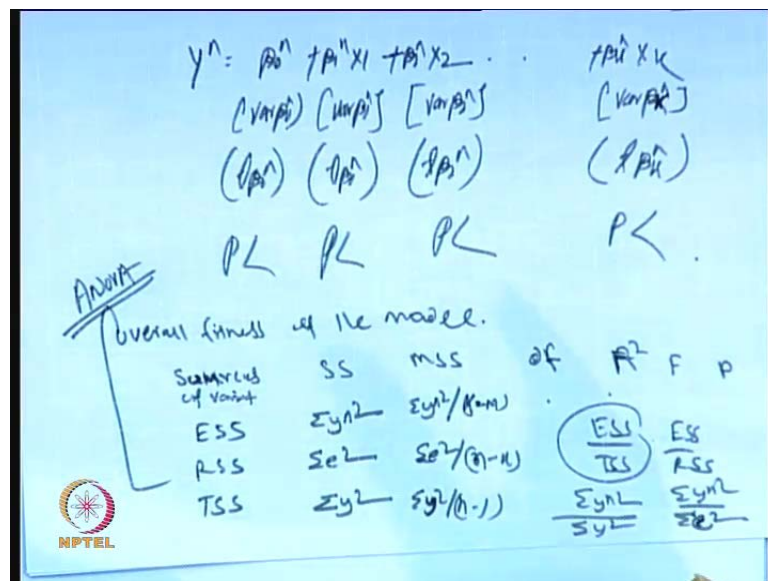 y^ = β0^ + β1^ x1 + β1^ x2 . . + βk^ xk
(var β0^) [var β1^] [var β2^] [var βk^]
(tβ0^) (tβ1^) (tβ2^) (tβk^)
P< P< P< P< .
ANOVA
Overall fitness of the model.
SS MSS df R² F P
of variat
ESS Σy^2 Σy^2/ . ESS/TSS ESS/RSS
RSS Σe2 Σe2/(n-k)
TSS Σy2 Σy2/(n-1) Σy^2/Σy2 Σy^2/Σe2
NPTEL